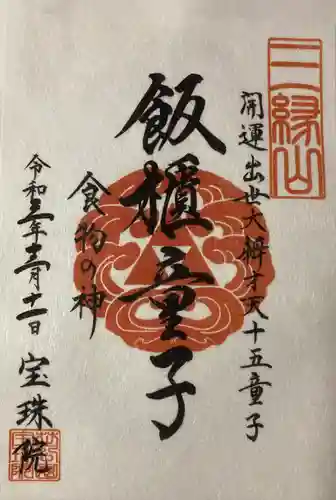 三縁山
開運出世大辨才天十五童子
飯櫃童子
食物の神
令和三年十二月十一日
宝珠院